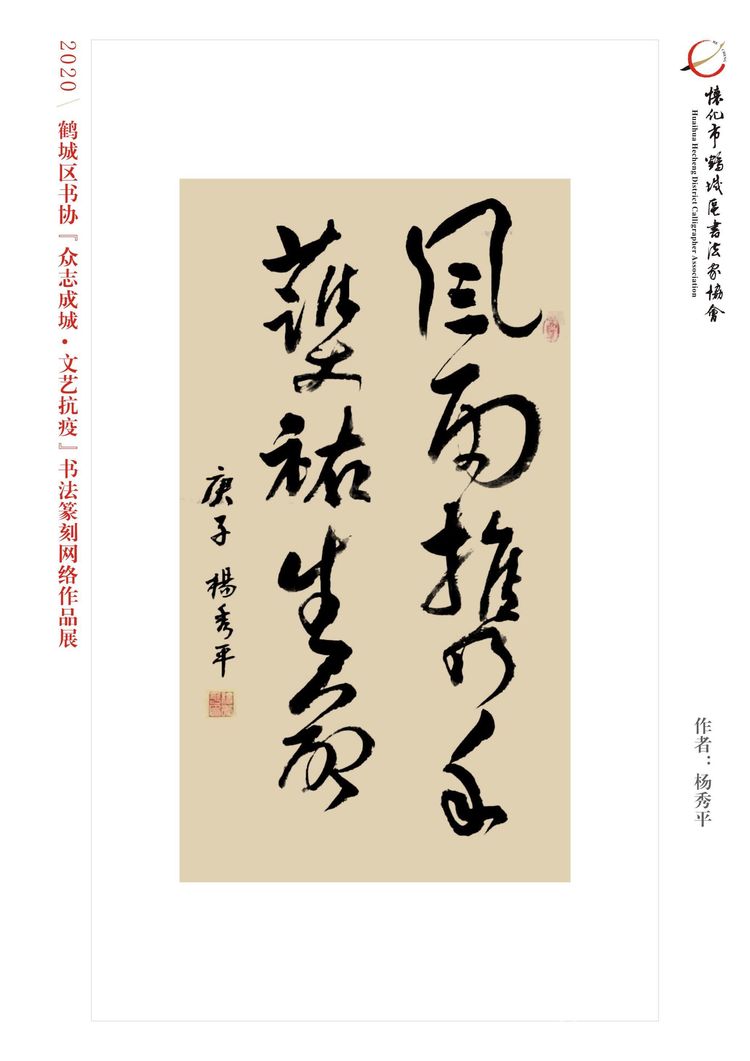 懷化市鶴城區書法家協會
Huaihua Hecheng District Calligrapher Association
風雨攜手
護祐生命
庚子 楊秀平
作者：杨秀平
2020 / 鹤城区书协『众志成城·文艺抗疫』书法篆刻网络作品展